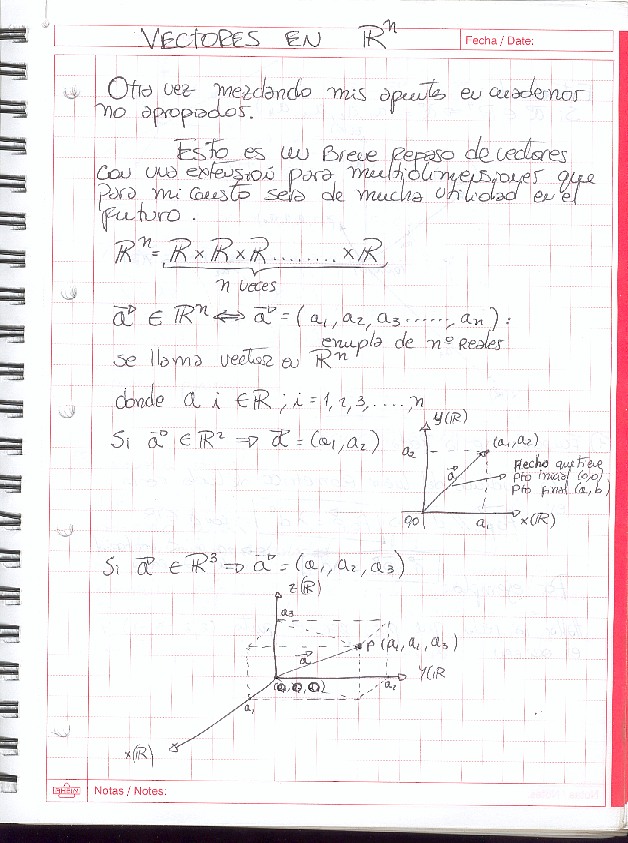 VECTORES EN ℝⁿ
Fecha / Date:
Otra vez mezclando mis apuntes en cuadernos
no apropiados.
Esto es un Breve Repaso de vectores
con una extensión para multidimensiones que
para mi gusto será de mucha utilidad en el
futuro.
ℝⁿ = ℝ × ℝ × ℝ ........ × ℝ
n veces
a⃗ ∈ ℝⁿ ⇔ a⃗ = (a₁, a₂, a₃ ......, aₙ) :
enupla de nº Reales
se llama vector en ℝⁿ
donde a i ∈ ℝ ; i = 1, 2, 3, ...., n
Si a⃗ ∈ ℝ² ⇒ a⃗ = (a₁, a₂)
y(ℝ)
a₂
(a₁, a₂)
a⃗
Flecha que tiene
Pto inicial (0,0)
Pto final (a, b)
a₁
x(ℝ)
Si a⃗ ∈ ℝ³ ⇒ a⃗ = (a₁, a₂, a₃)
z(ℝ)
a₃
a⃗
a₁
(0,0,0)
a₂
y(ℝ
x(ℝ)
RHEIN
Notas / Notes: